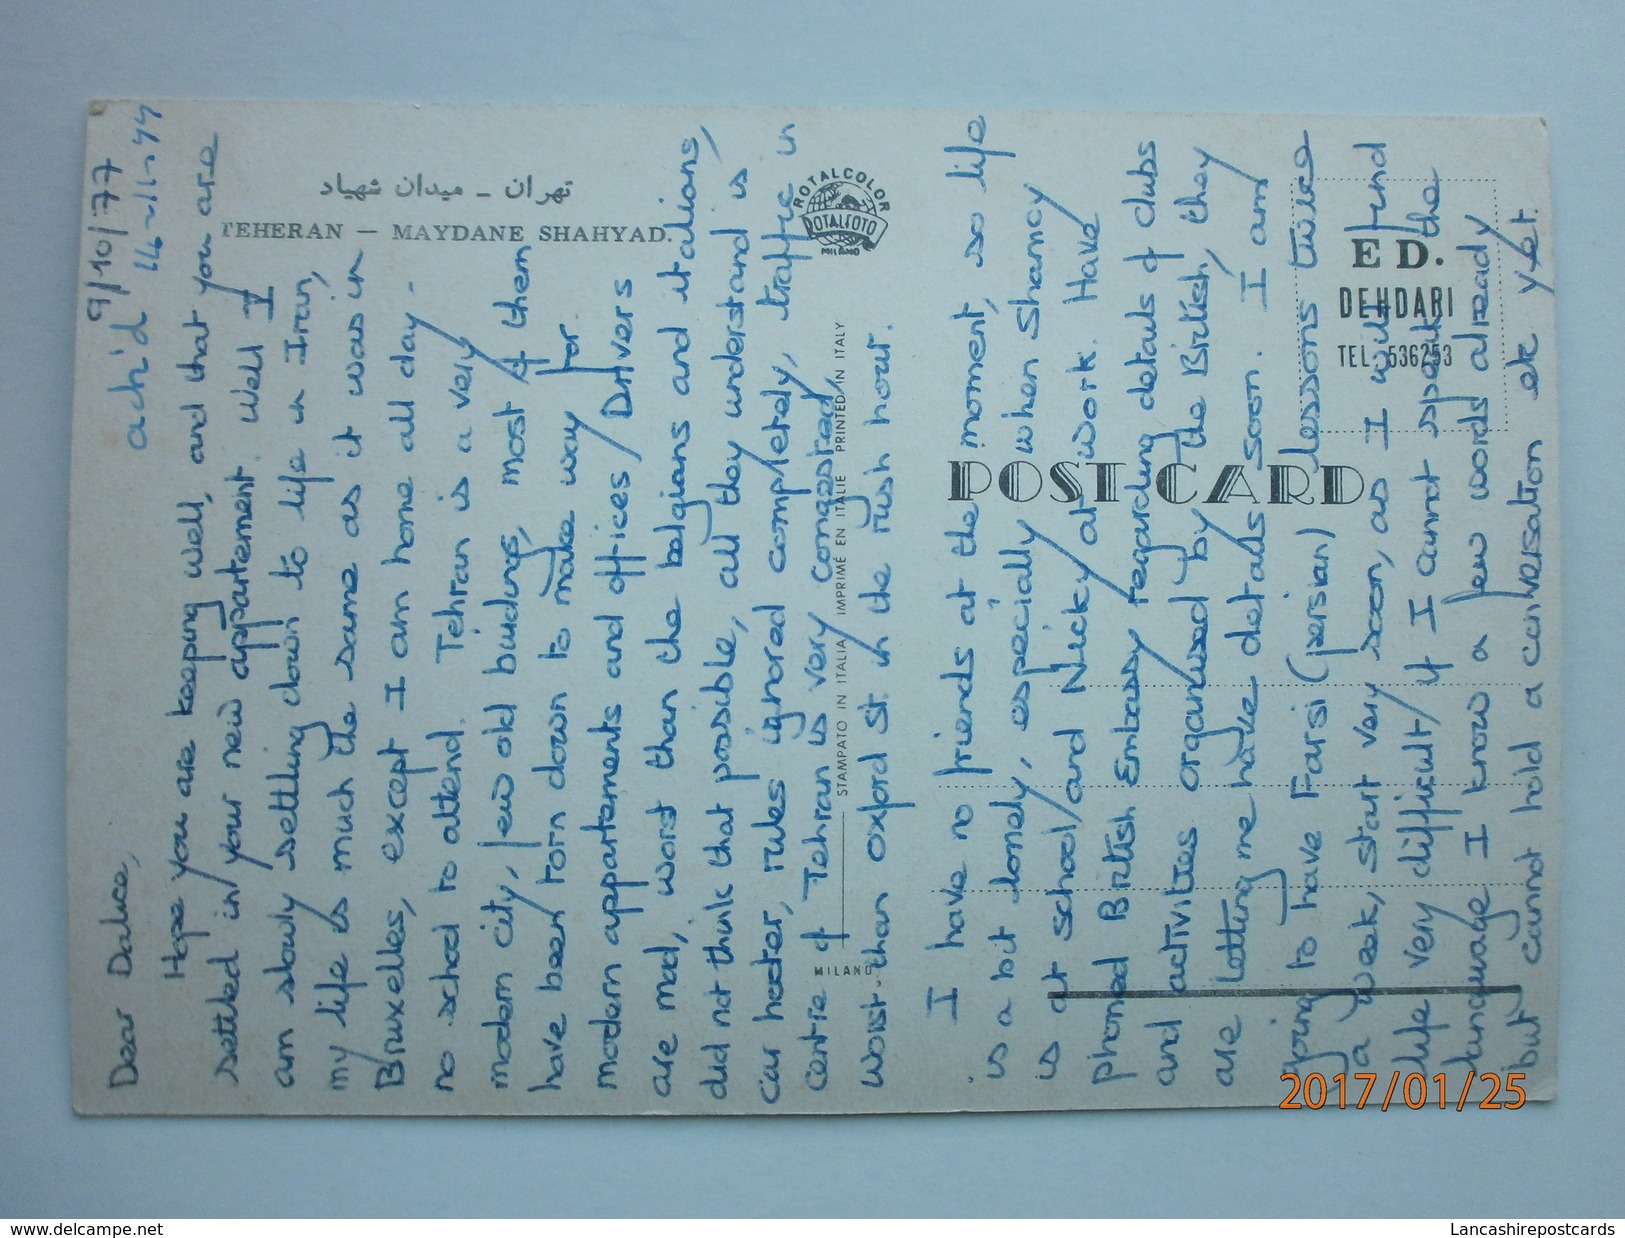 9/10/77
ack'd 14-11-77
Dear Dalice,
Hope you are keeping well, and that you are
settled in your new appartement. Well I
am slowly settling down to life in Iran,
my life is much the same as it was in
Bruxelles, except I am home all day -
no school to attend. Tehran is a very
modern city, few old buildings, most of them
have been torn down to make way for
modern appartements and offices. Drivers
are mad, worst than the belgians and italians,
did not think that possible, all they understand is
car hooter, rules ignored completely, traffic in
centre of Tehran is very congested,
worst than oxford st. in the rush hour.
I have no friends at the moment, so life
is a bit lonely, especially when Shancy
is at school and Nicky at work. Have
phoned British Embassy regarding details of clubs
and activities organised by the British, they
are lotting me have details soon. I am
going to have Farsi (persian) lessons twice
a week, start very soon, as I will find
life very difficult if I cannot speak the
language I know a few words already
but cannot hold a conversation etc yet.
تهران - میدان شهیاد
TEHERAN — MAYDANE SHAHYAD.
ROTALCOLOR
ROTALFOTO
MILANO
MILANO
STAMPATO IN ITALIA IMPRIMÉ EN ITALIE PRINTED IN ITALY
POST CARD
ED.
DEHDARI
TEL. 536253
2017/01/25
www.delcampe.net
Lancashirepostcards